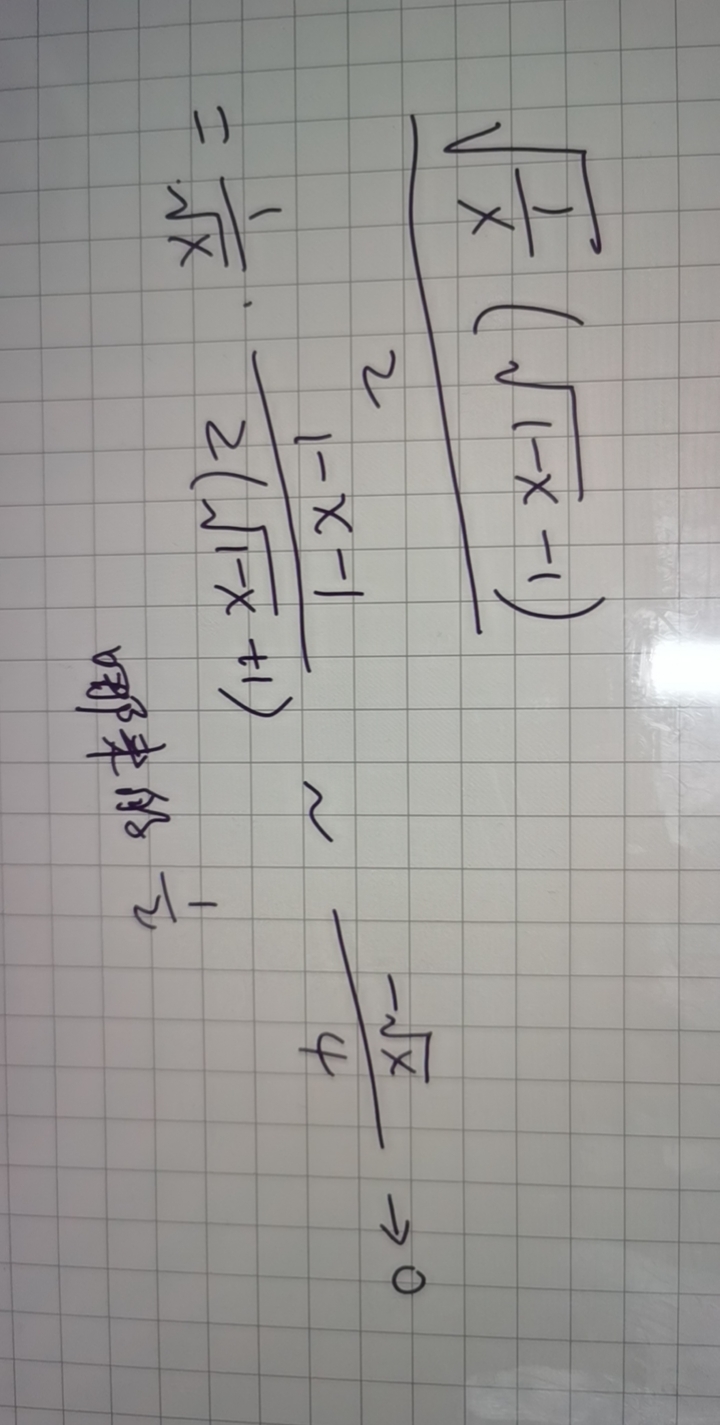 √(1/x) (√(1-x) - 1) / 2
= 1/√x · (1-x-1) / (2(√(1-x) +1)) ~ -√x / 4 → 0
1/2